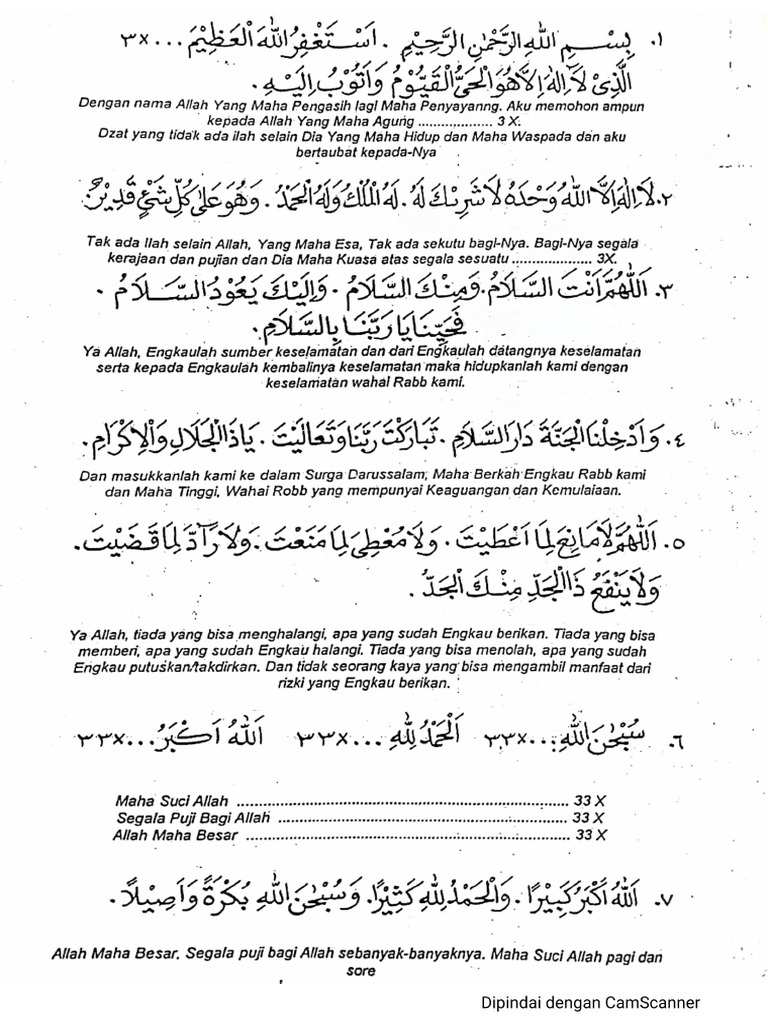 ١. بِسْمِ اللهِ الرَّحْمٰنِ الرَّحِيْمِ . اَسْتَغْفِرُ اللهَ الْعَظِيْمَ ... ×٣
الَّذِىْ لَآ اِلٰهَ اِلَّا هُوَ الْحَيُّ الْقَيُّوْمُ وَاَتُوْبُ اِلَيْهِ .
Dengan nama Allah Yang Maha Pengasih lagi Maha Penyayanng. Aku memohon ampun
kepada Allah Yang Maha Agung ................... 3 X.
Dzat yang tidak ada ilah selain Dia Yang Maha Hidup dan Maha Waspada dan aku
bertaubat kepada-Nya
٢. لَا اِلٰهَ اِلَّا اللهُ وَحْدَهُ لَا شَرِيْكَ لَهُ . لَهُ الْمُلْكُ وَلَهُ الْحَمْدُ . وَهُوَ عَلٰى كُلِّ شَيْئٍ قَدِيْرٌ
Tak ada Ilah selain Allah, Yang Maha Esa, Tak ada sekutu bagi-Nya. Bagi-Nya segala
kerajaan dan pujian dan Dia Maha Kuasa atas segala sesuatu .................... 3X.
٣. اَللّٰهُمَّ اَنْتَ السَّلَامُ . وَمِنْكَ السَّلَامُ . وَاِلَيْكَ يَعُوْدُ السَّلَامُ .
فَحَيِّنَا يَا رَبَّنَا بِالسَّلَامِ .
Ya Allah, Engkaulah sumber keselamatan dan dari Engkaulah datangnya keselamatan
serta kepada Engkaulah kembalinya keselamatan maka hidupkanlah kami dengan
keselamatan wahai Rabb kami.
٤. وَاَدْخِلْنَا الْجَنَّةَ دَارَ السَّلَامِ . تَبَارَكْتَ رَبَّنَا وَتَعَالَيْتَ . يَا ذَا الْجَلَالِ وَالْاِكْرَامِ .
Dan masukkanlah kami ke dalam Surga Darussalam, Maha Berkah Engkau Rabb kami
dan Maha Tinggi, Wahai Robb yang mempunyai Keaguangan dan Kemulaiaan.
٥. اَللّٰهُمَّ لَا مَانِعَ لِمَا اَعْطَيْتَ . وَلَا مُعْطِىَ لِمَا مَنَعْتَ . وَلَا رَآدَّ لِمَا قَضَيْتَ .
وَلَا يَنْفَعُ ذَا الْجَدِّ مِنْكَ الْجَدُّ .
Ya Allah, tiada yang bisa menghalangi, apa yang sudah Engkau berikan. Tiada yang bisa
memberi, apa yang sudah Engkau halangi. Tiada yang bisa menolah, apa yang sudah
Engkau putuskan/takdirkan. Dan tidak seorang kaya yang bisa mengambil manfaat dari
rizki yang Engkau berikan.
٦. سُبْحٰنَ اللهِ ... ×٣٣ اَلْحَمْدُ لِلّٰهِ ... ×٣٣ اَللهُ اَكْبَرُ ... ×٣٣
Maha Suci Allah ........................................................................ 33 X
Segala Puji Bagi Allah .............................................................. 33 X
Allah Maha Besar ..................................................................... 33 X
٧. اَللهُ اَكْبَرُ كَبِيْرًا . وَالْحَمْدُ لِلّٰهِ كَثِيْرًا . وَسُبْحٰنَ اللهِ بُكْرَةً وَاَصِيْلًا .
Allah Maha Besar. Segala puji bagi Allah sebanyak-banyaknya. Maha Suci Allah pagi dan
sore
Dipindai dengan CamScanner